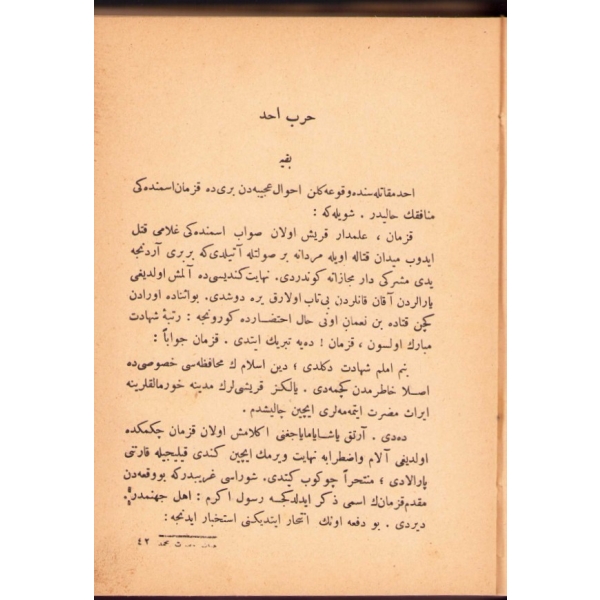 حرب احد
بقيه
احد مقاتله‌سنده وقوعه كلن احوال عجيبه‌دن برى‌ده قزمان اسمنده‌كى
منافقك حاليدر . شويله‌كه :
قزمان ، علمدار قريش اولان صواب اسمنده‌كى غلامى قتل
ايدوب ميدان قتاله اويله مردانه بر صولتله آتيلدى‌كه بربرى آردنجه
يدى مشركى دار مجازاته كوندردى. نهايت كنديسى‌ده آلمش اولديغى
يارالردن آقان قانلردن بى‌تاب اولارق يره دوشدى. بواثناده اورادن
كچن قتاده بن نعمان اونى حال احتضارده كورونجه : رتبهٔ شهادت
مبارك اولسون ، قزمان ! ديه تبريك ايتدى . قزمان جواباً :
بنم املم شهادت دكلدى ؛ دين اسلام ك محافظه‌سى خصوصى‌ده
اصلا خاطرمدن كچمه‌دى . يالكز قريشى‌لرك مدينه خورمالقلرينه
ايراث مضرت ايتمه‌مه‌لرى ايچين چاليشدم .
ده‌دى . آرتق ياشايامايا‌جغنى اكلامش اولان قزمان چكمكده
اولديغى آلام واضطرابه نهايت ويرمك ايچين كندى قيليجيله قارنى
يارالادى ؛ منتحراً چوكوب كيتدى. شوراسى غريبدركه بووقعه‌دن
مقدم قزمان‌ك اسمى ذكر ايدلدكجه رسول اكرم : اهل جهنمدر.
ديردى . بو دفعه اونك انتحار ايتديكنى استخبار ايدنجه :
حضرت محمد ٤٢